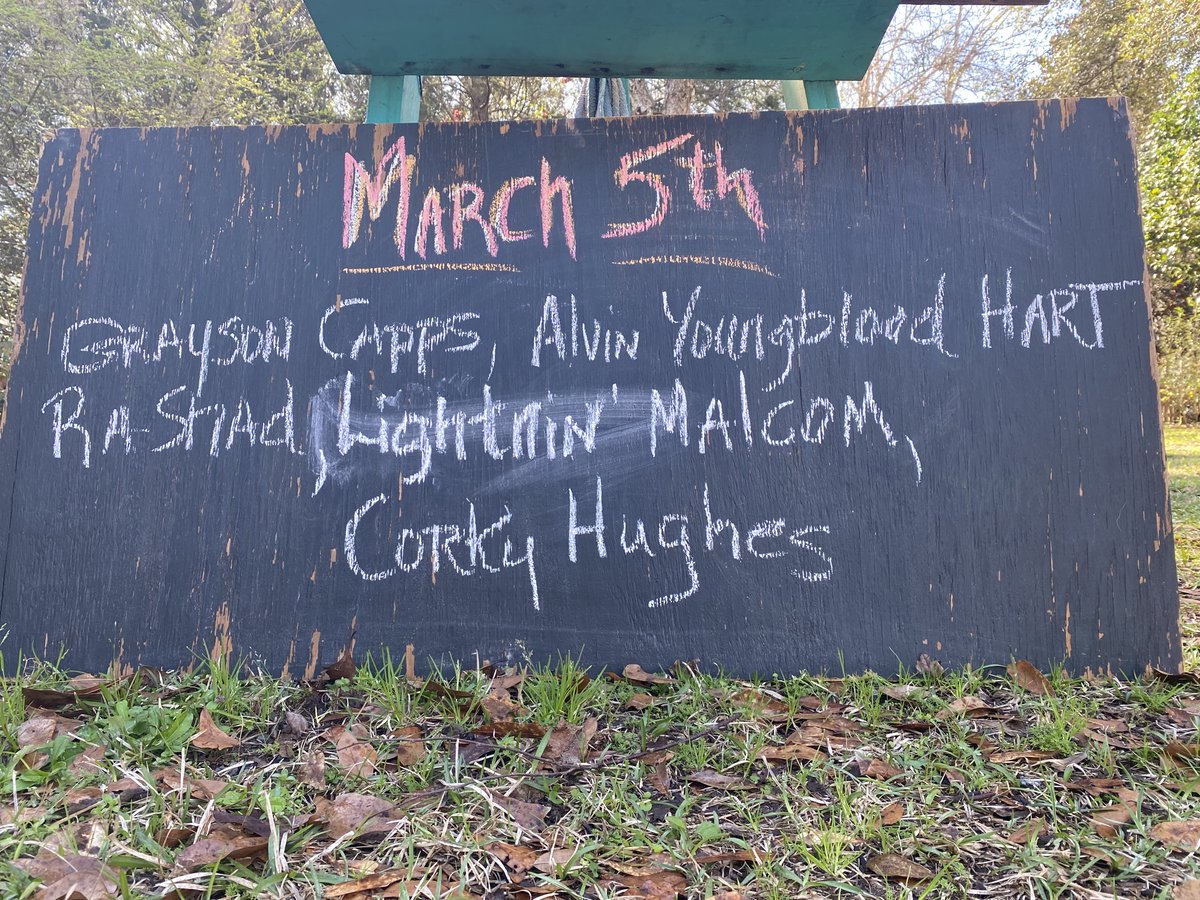 March 5th
Grayson Capps, Alvin Youngblood Hart
Ra-Shad, Lightnin' Malcom,
Corky Hughes